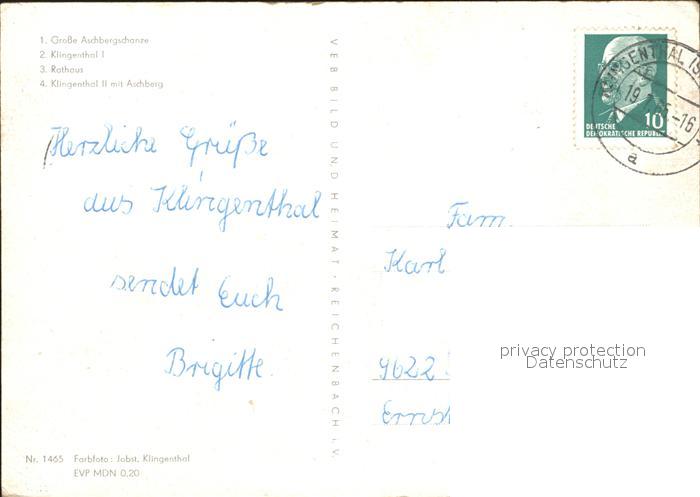 1. Große Aschbergschanze
2. Klingenthal I
3. Rathaus
4. Klingenthal II mit Aschberg
Herzliche Grüße
aus Klingenthal
sendet Euch
Brigitte.
VEB BILD UND HEIMAT · REICHENBACH i. V.
10
DEUTSCHE
DEMOKRATISCHE REPUBLIK
KLINGENTHAL (S
19 -16
a
Fam.
Karl
9622
Ernst
privacy protection
Datenschutz
Nr. 1465 Farbfoto: Jobst, Klingenthal
EVP MDN 0,20